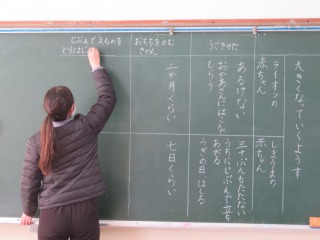 大きくなっていくようす
ライオンの
赤ちゃん
しまうまの
赤ちゃん
うごきかた
あるけない
おかあさんにはこんで
もらう
三十ぷんもたたない
うちにじぶんで立ち
あがる
つぎの日、はしる
おちちをのむ
きかん
二か月ぐらい
七日ぐらい
じぶんでえものを
とりはじ